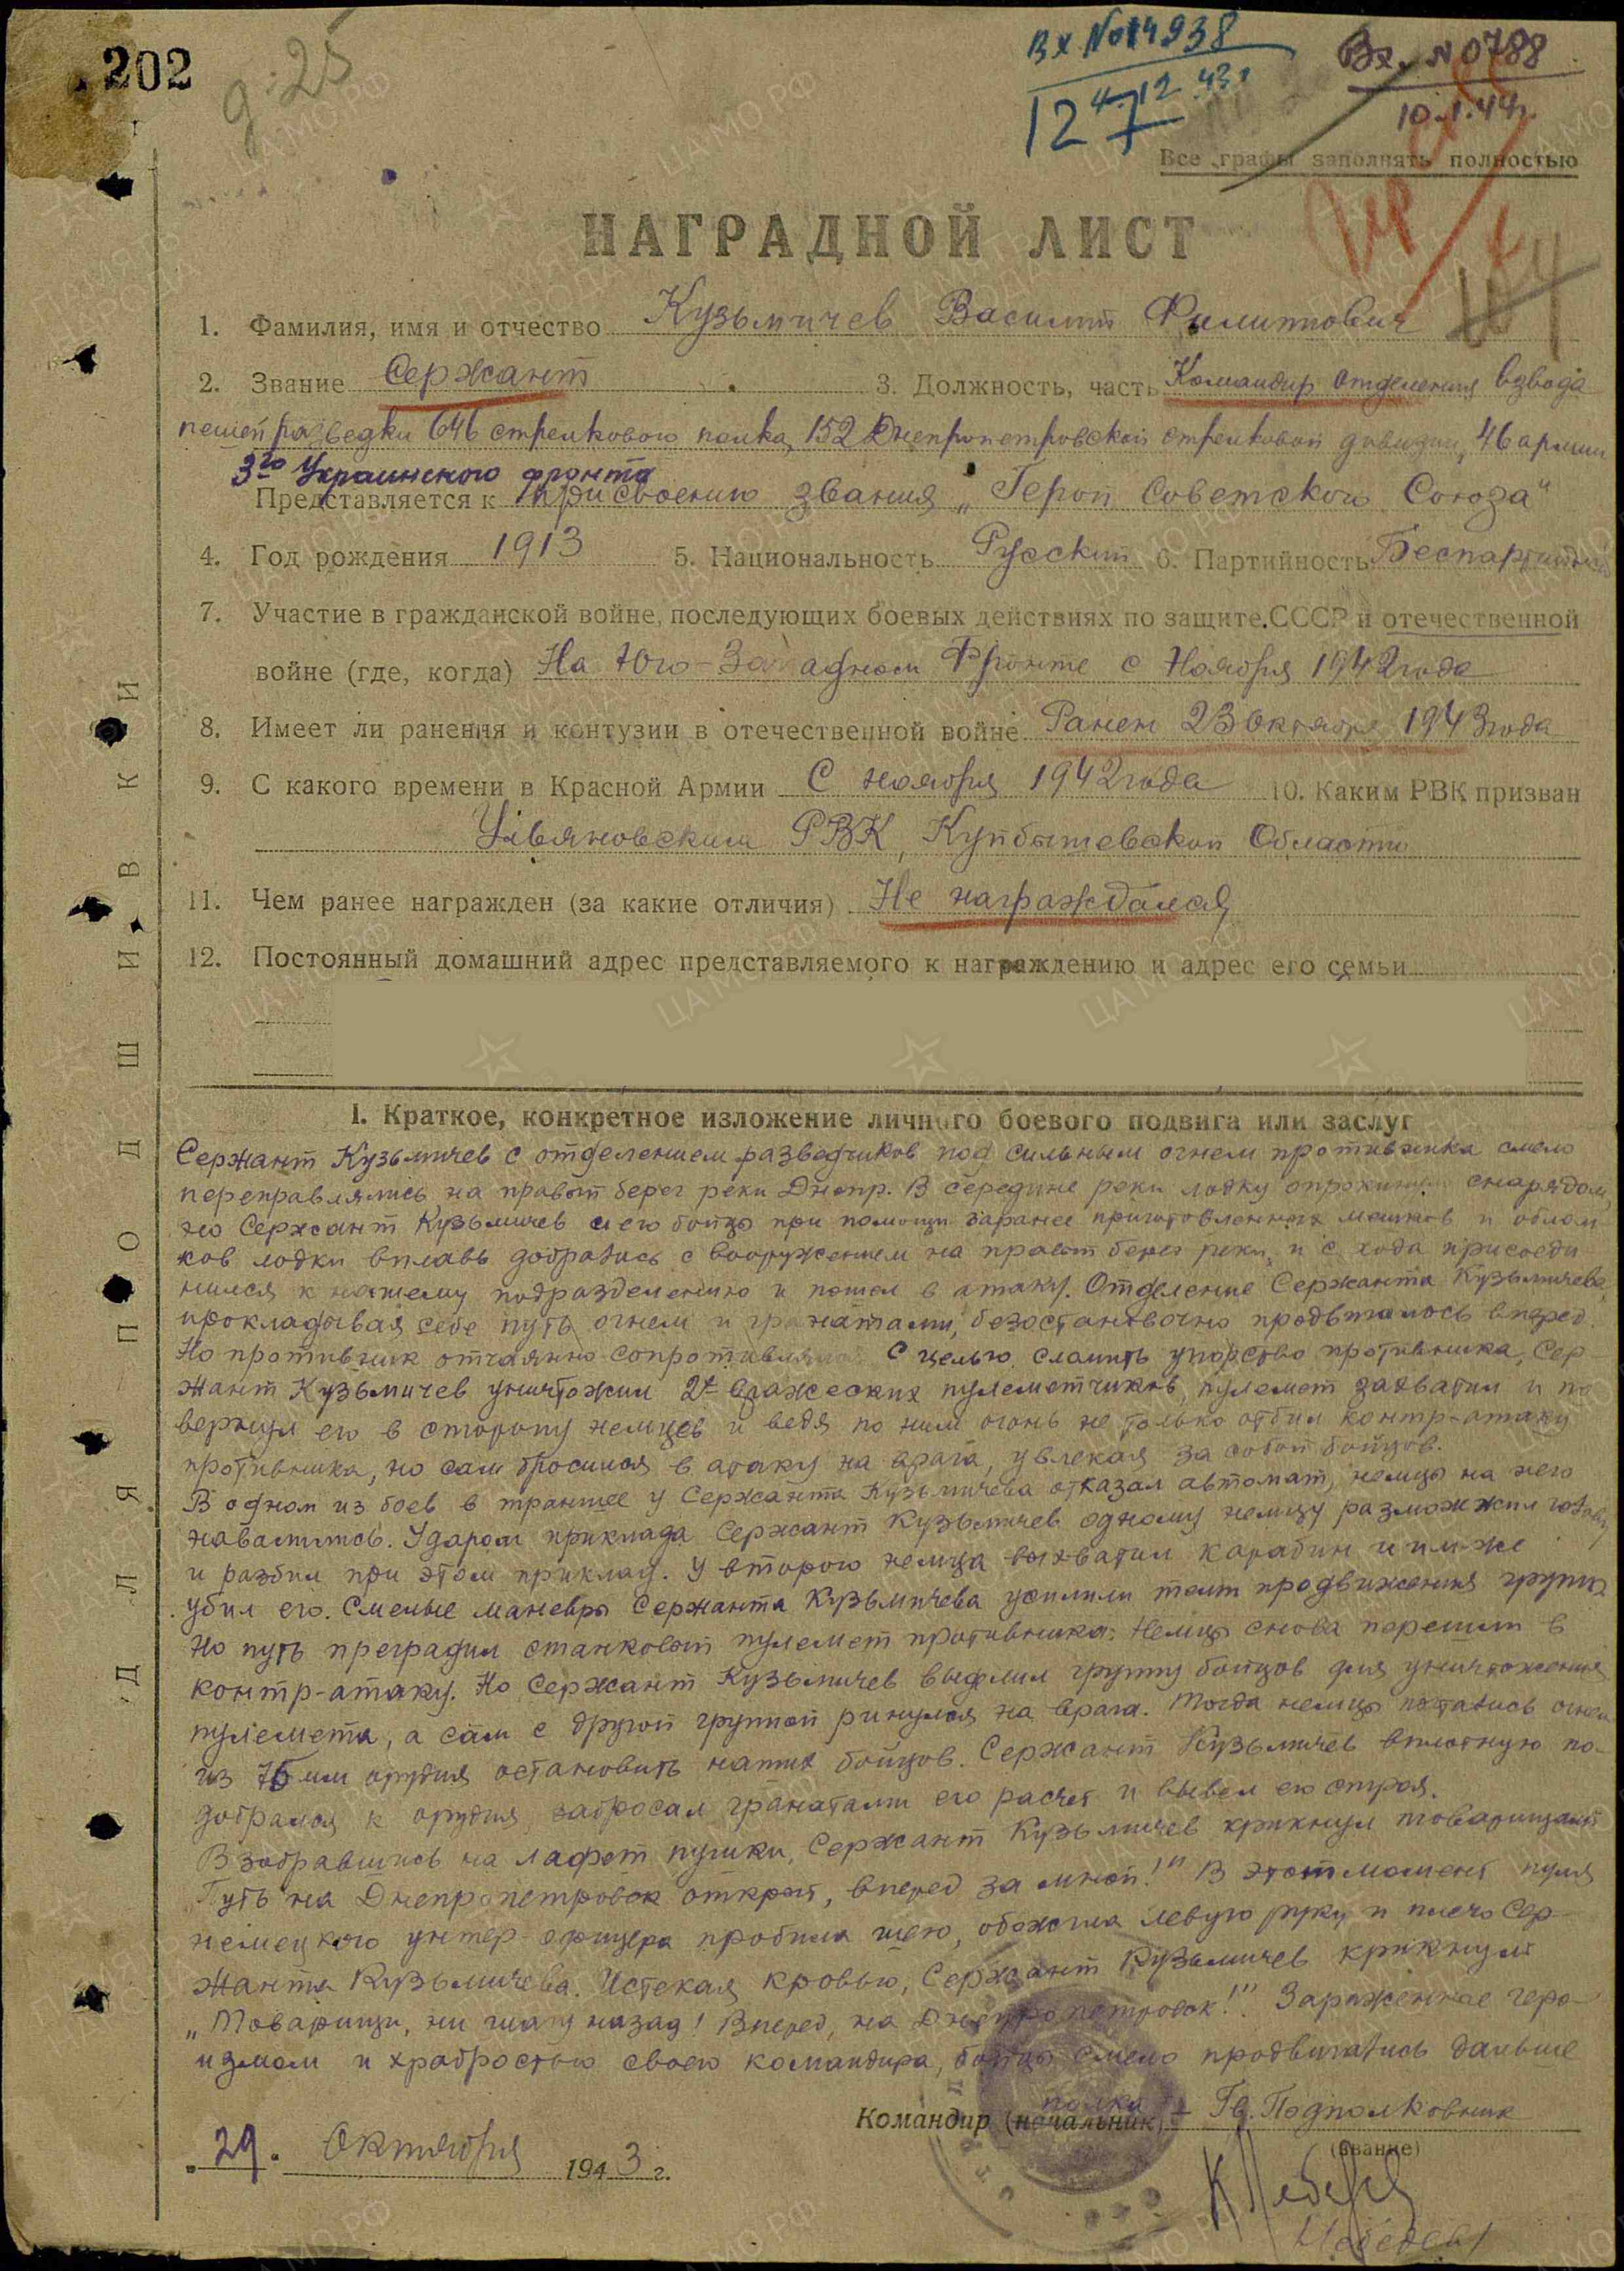 202
Вх №014938
4.12.43г
127
Вх. №0788
10.1.44г.
Все графы заполнять полностью
НАГРАДНОЙ ЛИСТ
1. Фамилия, имя и отчество Кузьмичев Василий Филиппович
2. Звание Сержант 3. Должность, часть Командир отделения взвода
пешей разведки 646 стрелкового полка, 152 Днепропетровской стрелковой дивизии, 46 армии
3го Украинского фронта
Представляется к присвоению звания „Герой Советского Союза"
4. Год рождения 1913 5. Национальность Русский 6. Партийность Беспартийный
7. Участие в гражданской войне, последующих боевых действиях по защите СССР и отечественной
войне (где, когда) На Юго-Западном Фронте с Ноября 1942 года
8. Имеет ли ранения и контузии в отечественной войне Ранен 23 октября 1943 года
9. С какого времени в Красной Армии С ноября 1942 года 10. Каким РВК призван
Ульяновским РВК, Куйбышевской Области
11. Чем ранее награжден (за какие отличия) Не награждался
12. Постоянный домашний адрес представляемого к награждению и адрес его семьи
ДЛЯ ПОДШИВКИ
I. Краткое, конкретное изложение личного боевого подвига или заслуг
Сержант Кузьмичев с отделением разведчиков под сильным огнем противника смело
переправлялись на правый берег реки Днепр. В середине реки лодку опрокинуло снарядом,
но Сержант Кузьмичев и его бойцы при помощи заранее приготовленных мешков и облом-
ков лодки вплавь добрались с вооружением на правый берег реки, и с хода присоеди
нился к нашему подразделению и пошел в атаку. Отделение Сержанта Кузьмичева,
прокладывая себе путь огнем и гранатами, безостановочно продвигалось вперед.
Но противник отчаянно сопротивлялся. С целью сломить упорство противника, Сер
жант Кузьмичев уничтожил 2х вражеских пулеметчиков, пулемет захватил и по
вернул его в сторону немцев и ведя по ним огонь не только отбил контр-атаку
противника, но сам бросился в атаку на врага, увлекая за собой бойцов.
В одном из боев в траншее у Сержанта Кузьмичева отказал автомат, немцы на него
навалились. Ударом приклада Сержант Кузьмичев одному немцу размозжил голову
и разбил при этом приклад. У второго немца выхватил карабин и им-же
убил его. Смелые маневры Сержанта Кузьмичева усилили темп продвижения группы
Но путь преградил станковый пулемет противника. Немцы снова перешли в
контр-атаку. Но Сержант Кузьмичев выделил группу бойцов для уничтожения
пулемета, а сам с другой группой ринулся на врага. Тогда немцы пытались огнем
из 75 мм орудия остановить наших бойцов. Сержант Кузьмичев вплотную по-
добрался к орудия забросал гранатами его расчет и вывел его строя.
Взобравшись на лафет пушки, Сержант Кузьмичев крикнул товарищам
Путь на Днепропетровск открыт, вперед за мной!" В этот момент пуля
немецкого унтер-офицера пробила шею, обожгла левую руку и плечо Сер-
жанта Кузьмичева. Истекая кровью, Сержант Кузьмичев крикнул
„Товарищи, ни шагу назад! Вперед, на Днепропетровск!". Зараженные геро-
измом и храбростью своего командира, бойцы смело продвигались дальше
полка
Командир (начальник) Гв. Подполковник
(звание)
29. Октября 1943 г.
Лебедев/